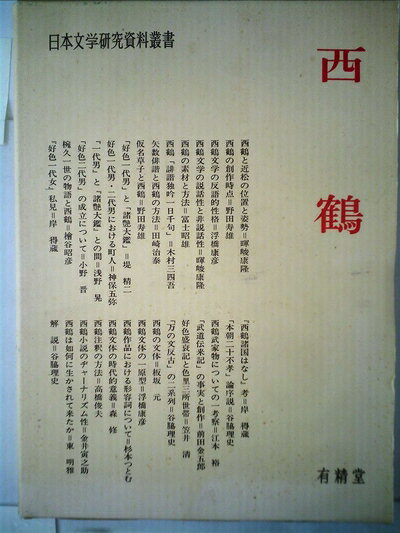 日本文学研究資料叢書
西鶴
西鶴と近松の位置と姿勢＝暉峻康隆
西鶴の創作時点＝野田寿雄
西鶴文学の反語的性格＝浮橋康彦
西鶴文学の説話性と非説話性＝暉峻康隆
西鶴の素材と方法＝冨士昭雄
西鶴「俳諧独吟一日千句」＝木村三四吾
矢数俳諧と西鶴の方法＝田崎治泰
仮名草子と西鶴＝野田寿雄
「好色一代男」と「諸艶大鑑」＝堤精二
好色一代男・二代男における町人＝神保五弥
「一代男」と「諸艶大鑑」との間＝浅野晃
「好色二代男」の成立について＝小野晋
椀久一世の物語と西鶴＝檜谷昭彦
「好色一代女」私見＝岸得蔵
『西鶴諸国はなし』考＝岸得蔵
「本朝二十不孝」論序説＝谷脇理史
西鶴武家物についての一考察＝江本裕
「武道伝来記」の事実と創作＝前田金五郎
好色盛衰記と色里三所世帯＝笠井清
「万の文反古」の二系列＝谷脇理史
西鶴の文体＝板坂元
西鶴文体の一原型＝浮橋康彦
西鶴作品における形容詞について＝杉本つとむ
西鶴文体の時代的意義＝森修
西鶴注釈の方法＝高橋俊夫
西鶴小説のヂャーナリズム性＝金井寅之助
西鶴は如何に生かされて来たか＝東明雅
解説＝谷脇理史
有精堂